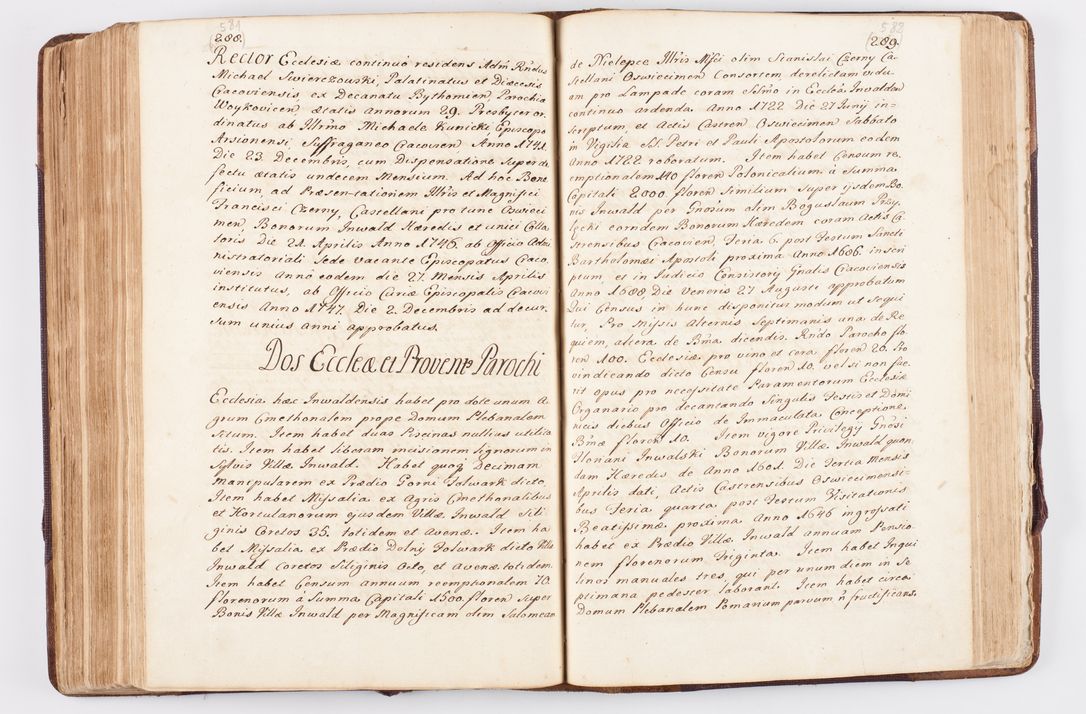 581
288.
Rector Ecclesiæ continuo residens Adm̃ Rñdus
Michael Swierczowski, Palatinatus et Diæcesis
Cracoviensis, ex Decanatu Bythomien, Parochia
Woykovicen, ætatis annorum 29. Presbyter or-
dinatus ab Illr̃mo Michaele Kunicki Episcopo
Arsionensi, Suffraganeo Cracovien Anno 1741.
Die 23. Decembris, cum Dispensatione Super de
fectu ætatis undecem Mensium. Ad hoc Bene
ficium, ad Præsen-tationem Illr̃is et Magnifici
Francisci Czerny, Castellani pro tunc Oswieci
men, Bonorum Inwald Hæredis et unici Colla
toris, Die 24. Aprilis Anno 1746. ab Officio Admi
nistratoriali Sede vacante Episcopatus Craco
viensis Anno eodem die 27. Mensis Aprilis
institutus, ab Officio Curiæ Episcopalis Cracovi
ensis Anno 1747. Die 2. Decembris ad decur
sum unius anni approbatus.
Dos Eccleæ et Provent9 Parochi
Ecclesia hæc Inwaldensis habet pro dote unum A
grum Cmethonalem prope Domum Plebanalem
Situm. Item habet duas Piscinas nullius utilita
tis. Item habet liberam incisionem lignorum in
Sylvis Villæ Inwald. Habet quoq Decimam
Manipularem ex Prædio Gorni Folwark dicto,
Item habet Missalia ex Agris Cmethonalibus
et Hortulanorum ejusdem Villæ Inwald Sili
ginis Coretos 35. totidem et Avenæ. Item ha
bet Missalia ex Prædio Dolny Folwark dicto Villæ
Inwald coretos Siliginis Octo, et Avenæ totidem.
Item habet Censum annuum reemptionalem 70.
florenorum â Summa Capitali 1500. floren Super
Bonis Villæ Inwald per Magnificam olim Salomeam
582
289.
de Nielepce Illr̃is Mfci olim Stanislai Czerny Ca-
stellani Oswiecimen Consortem, derelictam vidu
am pro Lampade coram SSmo in Ecclea Inwalden
continuo ardenda. Anno 1722 Die 27 Junij in-
scriptum, et Actis Castren Oswiecimen Sabbato
in Vigilia SS. Petri et Pauli Apostolorum eodem
Anno 1722 roboratum. Item habet Censum re-
emptionalem 140 floren Polonicalium â Summa
Capitali 2000 floren Similium Super ijsdem Bo
nis Inwald per Gnosum olim Boguslaum Przy
lecki eorndem Bonorum Hæredem coram Actis Ca
strensibus Cracovien Feria 6. post Festum Sancti
Bartholomæi Apostoli proxima Anno 1686. inscri
ptum, et in Judicio Consistorij Gnalis Cracoviensis
Anno 1688. Die Veneris 27 Augusti approbatum
Qui Census in hunc disponitur modum ut sequi
tur, Pro Missis Alternis Septimanis una de Re
quiem, altera de Bma dicendis. Rndo Parocho flo
ren 100. Ecclesiæ pro vino et cera floren 20. Pro
vindicando dicto Censu floren 10. vel si non fue
rit opus pro necessitate Paramentorum Ecclesiæ
Organario pro decantando Singulis Festis et Domi
nicis diebus Officio de Immaculata Conceptione
Bmæ floren 10. Item vigore Privilegij Gnosi
Floriani Inwalski Bonorum Villæ Inwald quon
dam Hæredis de Anno 1601. Die Tertia Mensis
Aprilis dati, Actis Castrensibus Oswiecimensi-
bus Feria quarta post Festum Visitationis
Beatissimæ proxima Anno 1646 ingrossati
habet ex Prædio Villæ Inwald annuam Pensio
nem florenorum Triginta. Item habet Inqui
linos manuales tres, qui per unum diem in Se
ptimana pedester laborant. Item habet circa
Domum Plebanalem Pomarium parvum ñ fructificans.